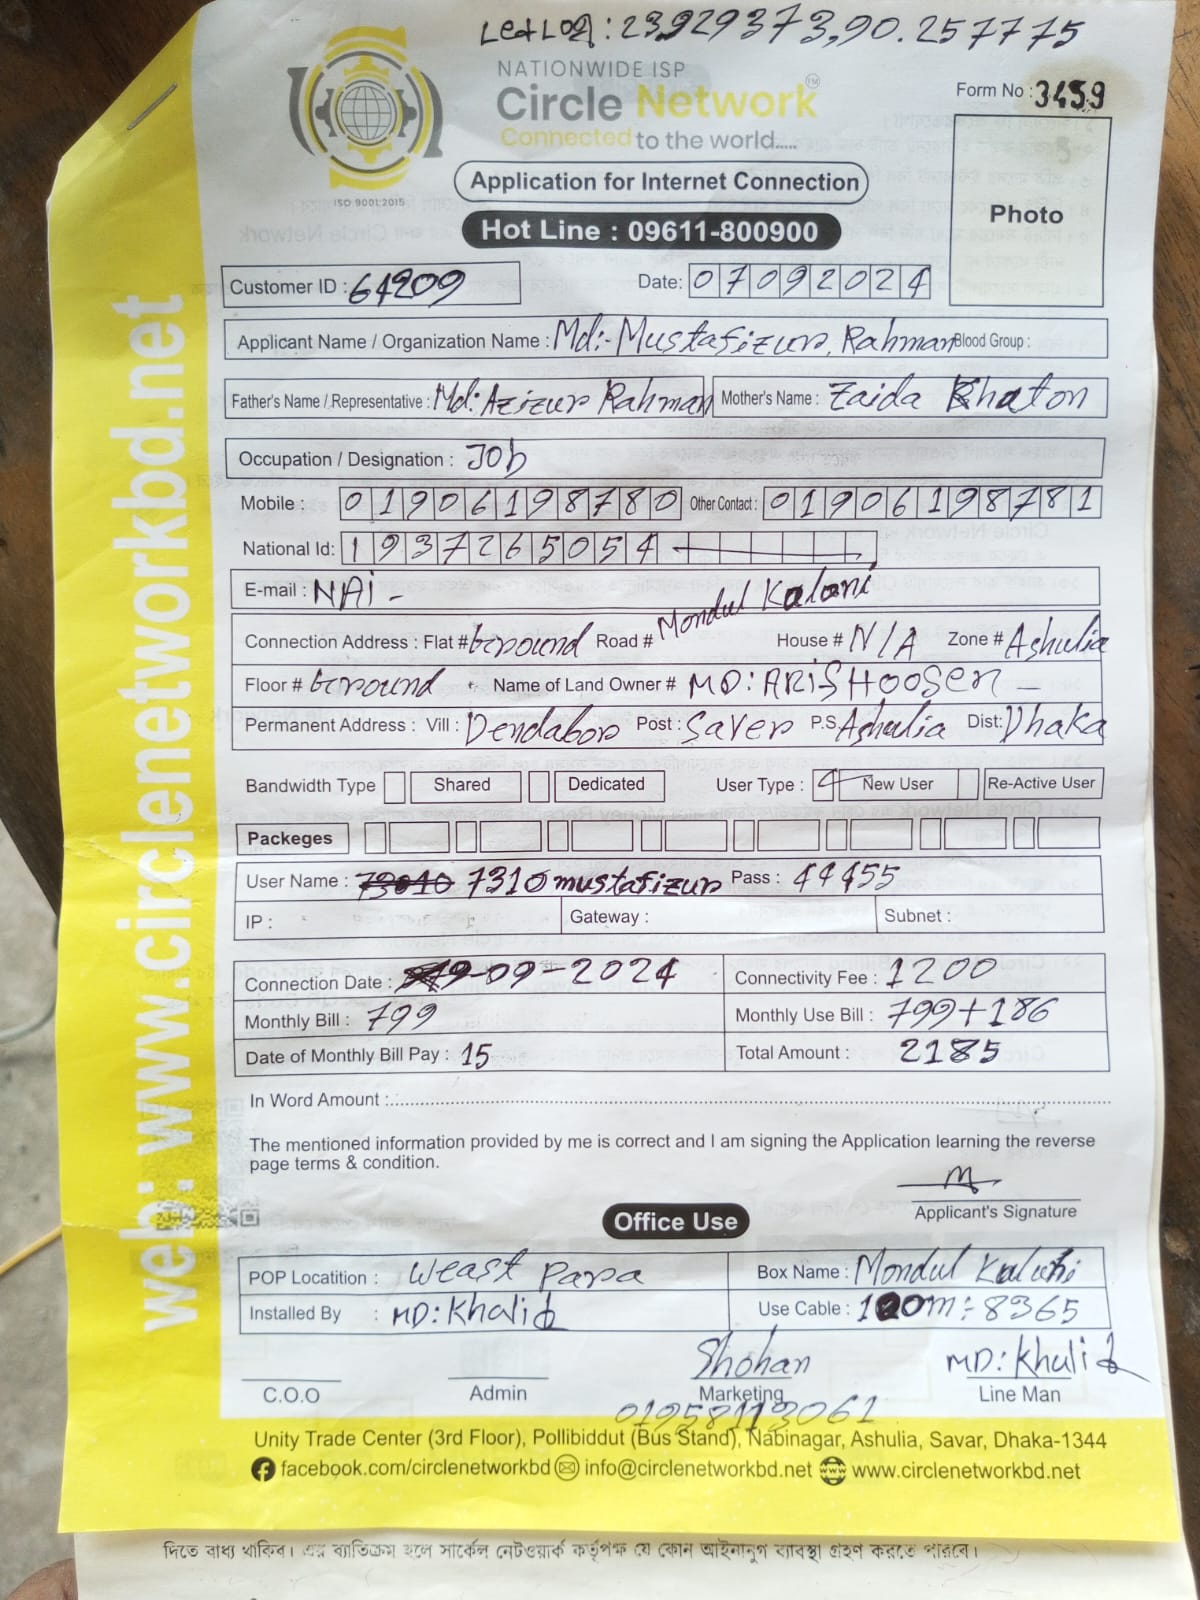 Let Log : 23.929373, 90.257775
NATIONWIDE ISP
Circle Network™
Connected to the world.....
ISO 9001:2015
Form No : 3459
Photo
Application for Internet Connection
Hot Line : 09611-800900
Customer ID : 64209 Date: 07092024
Applicant Name / Organization Name : Md:- Mustafizur Rahman Blood Group :
Father's Name / Representative : Md: Azizur Rahman Mother's Name : Zaida Khaton
Occupation / Designation : Job
Mobile : 01906198780 Other Contact : 01906198781
National Id: 1937265054
E-mail : NAi -
Connection Address : Flat # Ground Road # Mondul Kalani House # N/A Zone # Ashulia
Floor # Ground Name of Land Owner # MD: ARiS HOOSen
Permanent Address : Vill : Dendabor Post : Saver P.S Ashulia Dist: Dhaka
Bandwidth Type Shared Dedicated User Type : New User Re-Active User
Packeges
User Name : 73010 7310mustafizur Pass : 44455
IP : Gateway : Subnet :
Connection Date : 9-09-2024 Connectivity Fee : 1200
Monthly Bill : 799 Monthly Use Bill : 799+186
Date of Monthly Bill Pay : 15 Total Amount : 2185
In Word Amount :
The mentioned information provided by me is correct and I am signing the Application learning the reverse
page terms & condition.
Applicant's Signature
Office Use
POP Locatition : Weast Para Box Name : Mondul Kalani
Installed By : MD: Khalid Use Cable : 100m÷8365
Shohan MD: Khalid
C.O.O Admin Marketing Line Man
01958113061
Unity Trade Center (3rd Floor), Pollibiddut (Bus Stand), Nabinagar, Ashulia, Savar, Dhaka-1344
facebook.com/circlenetworkbd info@circlenetworkbd.net www.circlenetworkbd.net
web: www.circlenetworkbd.net
দিতে বাধ্য থাকিব। এর ব্যতিক্রম হলে সার্কেল নেটওয়ার্ক কর্তৃপক্ষ যে কোন আইনানুগ ব্যবস্থা গ্রহণ করতে পারবে।